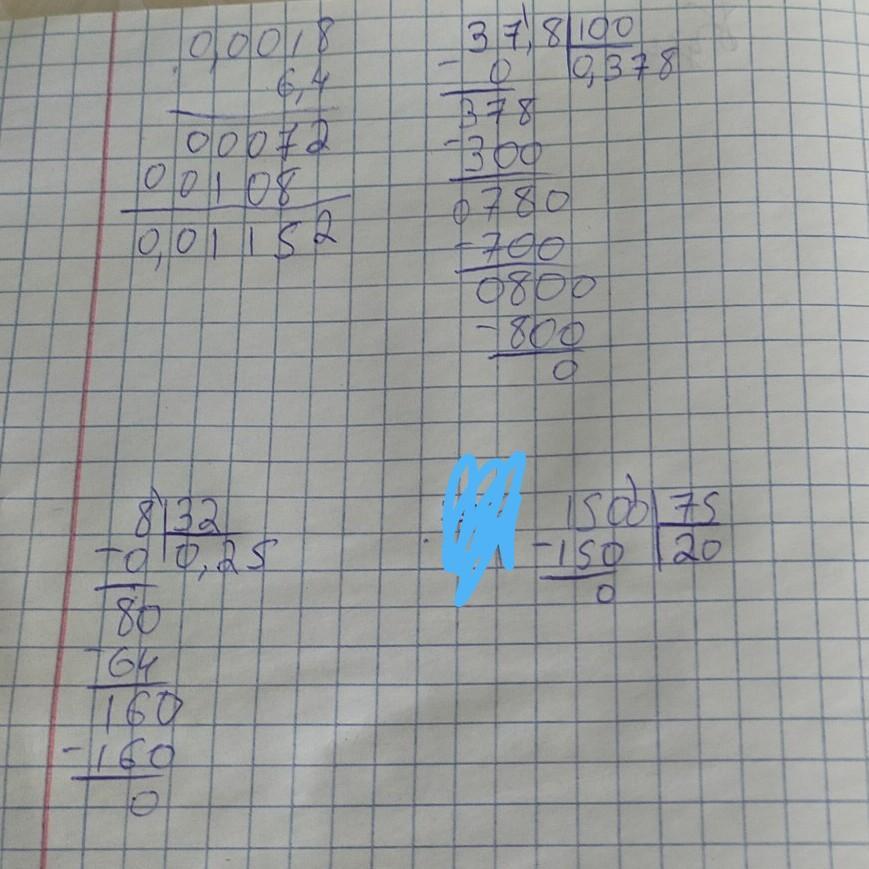 0,0018
6,4
00072
00108
0,01152
37,8 100
- 0 0,378
378
-300
0780
-700
0800
-800
0
8 32
-0 0,25
80
-64
160
-160
0
1500 75
-150 20
0